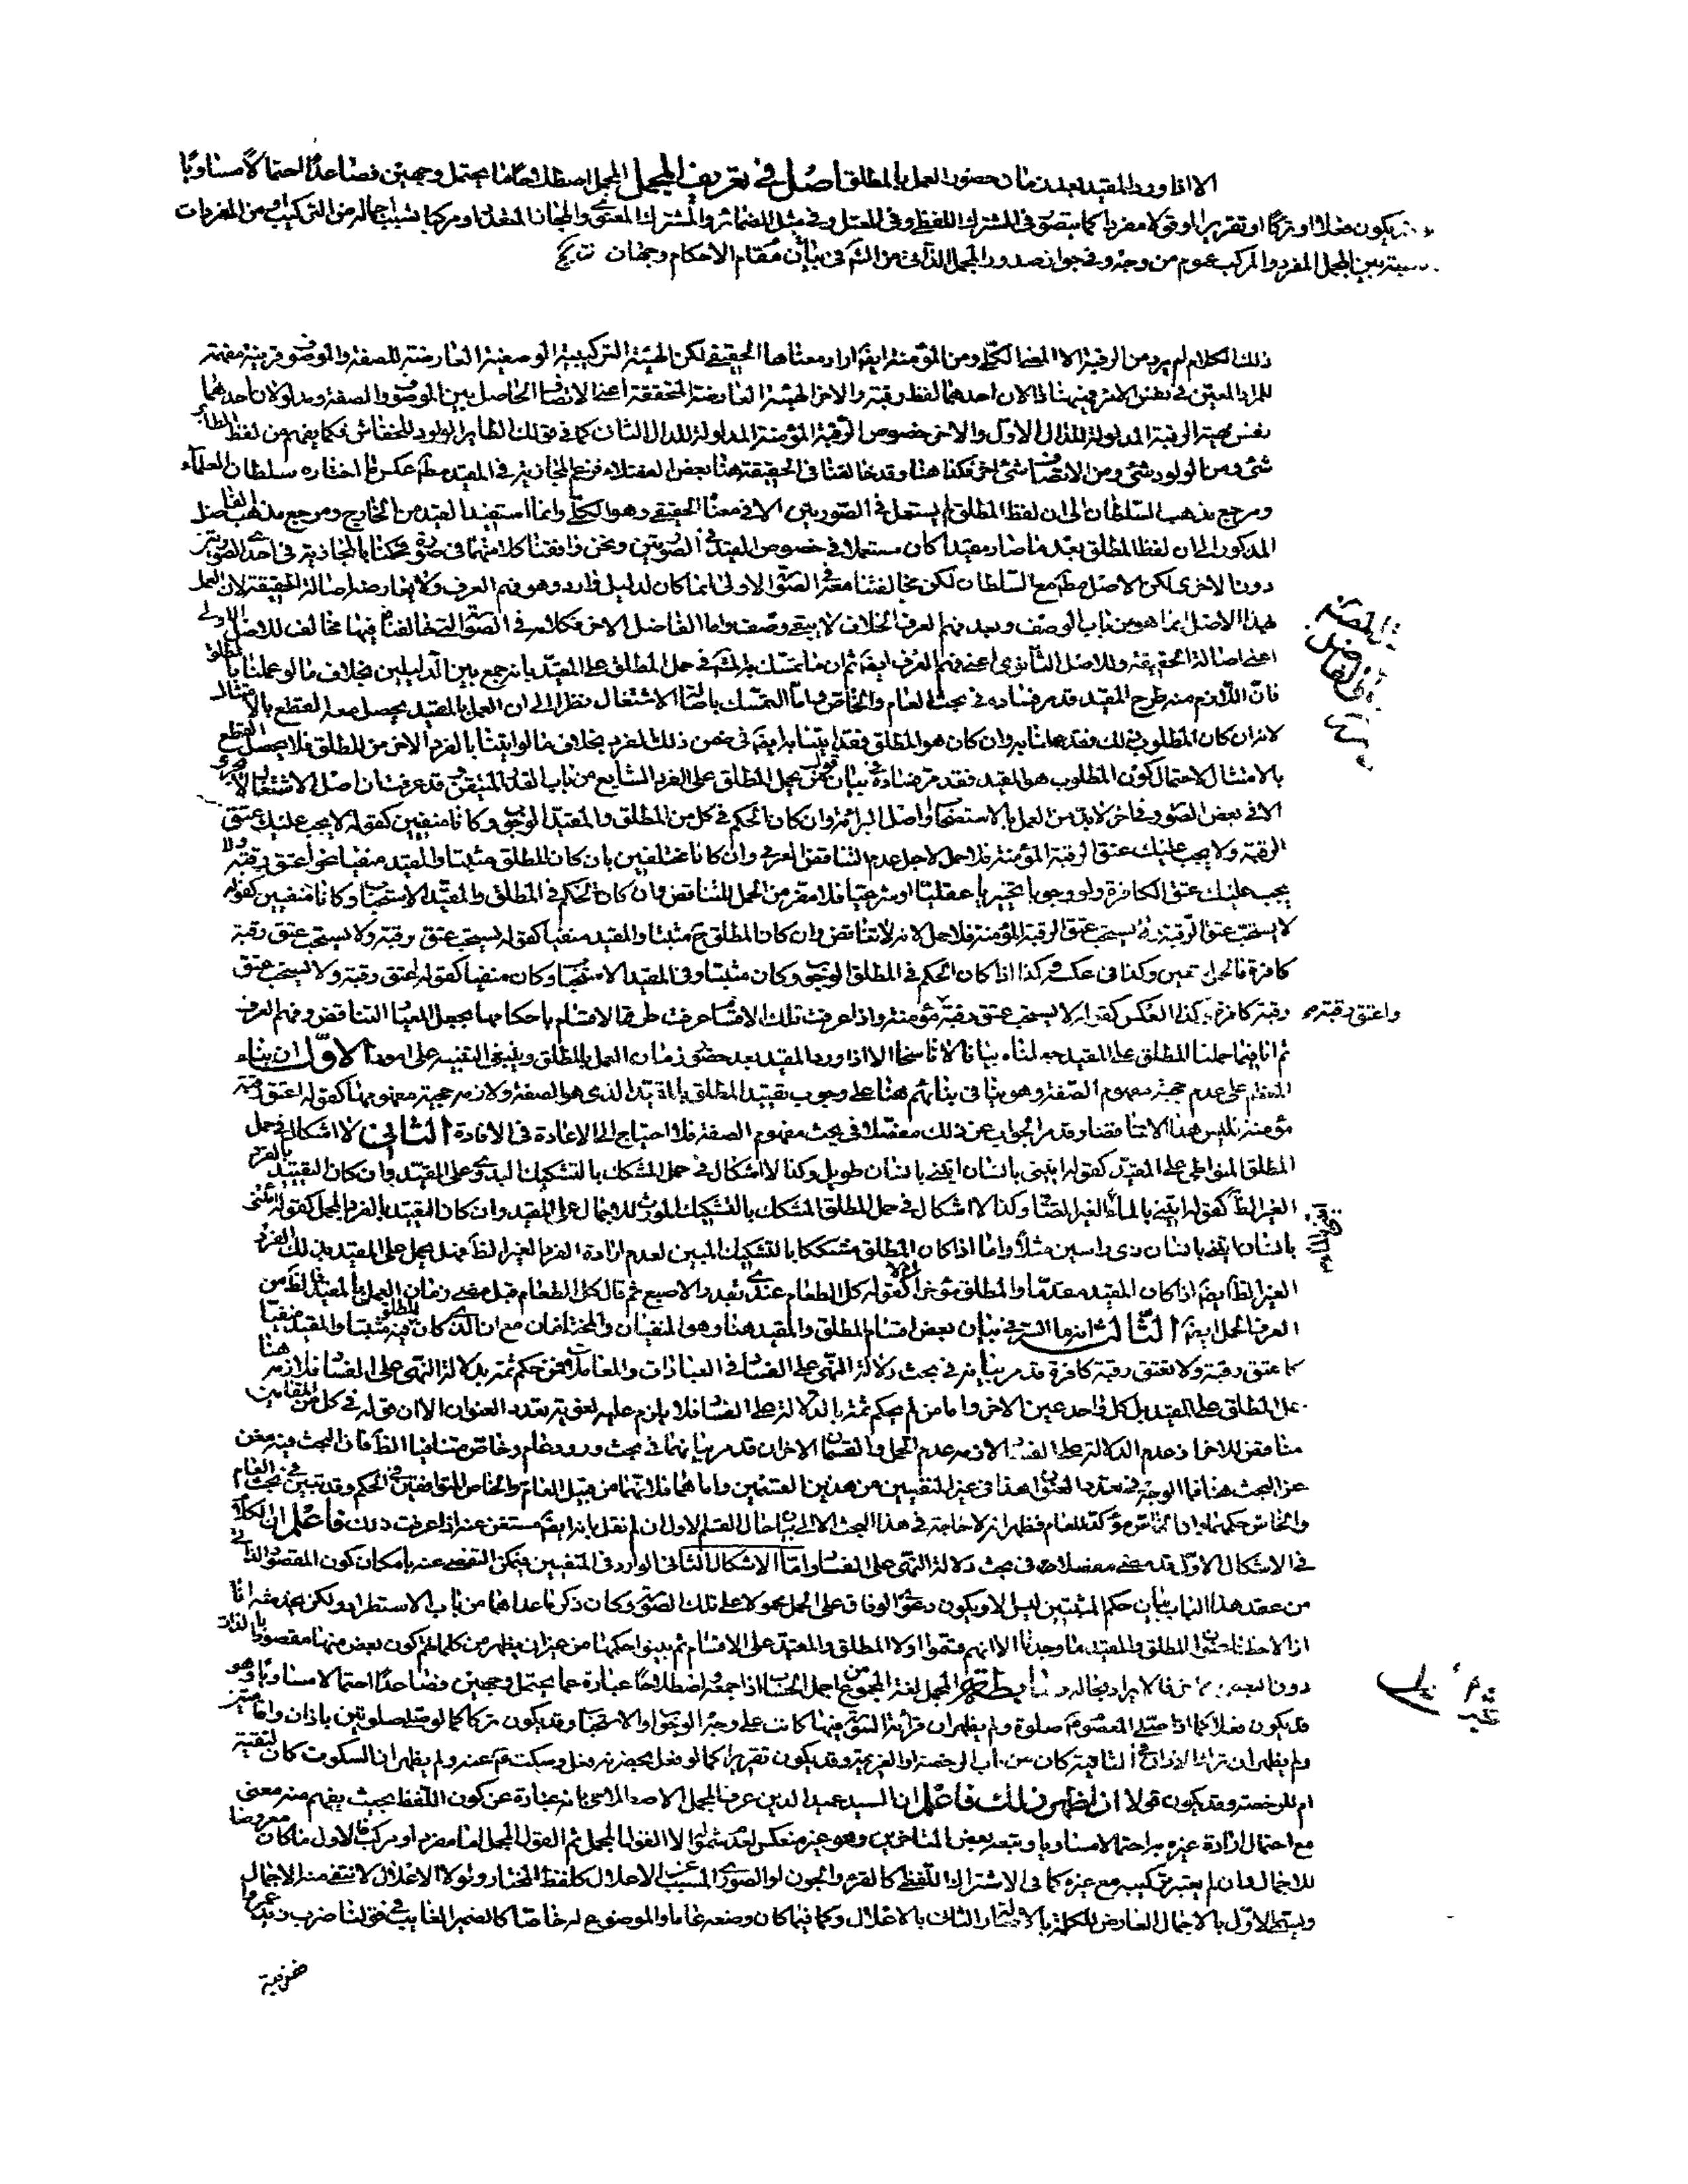 الا اذا ورد المقيد بعد زمان حضور العمل بالمطلق اصل في تعريف المجمل المجمل اصطلاحا ما يحتمل وجهين فصاعدا احتمالا مساويا
يكون فعلا او تركا او تقريرا او قولا مفردا كما يتصور في المشترك اللفظي وفي المعتل وفي مثل الضمائر والمشترك المعنوي والمجاز او مركبا بسبب اجماله من التركيب او من المفردات
بين المجمل المفرد والمركب عموم من وجه وفي جواز صدور المجمل الذاتي من الشرع في بيان مقام الاحكام وجهان
ذلك الكلام لم يرد من الرقبة الا المعنى الكلي ومن المؤمنة ايضا اراد معناها الحقيقي لكن الهيئة التركيبية الوصفية العارضة للصفة والموصوف قرينة مفهمة
للمراد المعين في نفس الامر فهنا دالان احدهما لفظ رقبة والاخر الهيئة العارضة المتحققة اعني الاتصاف الحاصل بين الموصوف والصفة ومدلولان احدهما
نفس مهية الرقبة المدلولة للدال الاول والاخر خصوص الرقبة المؤمنة المدلولة للدال الثاني كما في قولك الطاير الولود للخفاش فكما يفهم من لفظ الطاير
شئ ومن الولود شئ ومن الاتصاف شئ اخر فكذا هنا وقد خالفنا في الحقيقة هنا بعض الفضلاء فزعم المجازية في المقيد مطلقا عكس ما اختاره سلطان العلماء
ومرجع مذهب السلطان الى ان لفظ المطلق لم يستعمل في الصورتين الا في معناه الحقيقي وهو الكلي وانما استفيد القيد من الخارج ومرجع مذهب الفاضل
المذكور الى ان لفظ المطلق بعد ما صار مقيدا كان مستعملا في خصوص المقيد في الصورتين ونحن وافقنا كلا منهما في صورة فحكمنا بالمجازية في احدى الصورتين
دون الاخرى لكن الاصل مطلقا مع السلطان لكن مخالفتنا معه في الصورة الاولى انما كان لدليل وارد وهو فهم العرف ولا يعارضه اصالة الحقيقة لان العمل
بهذا الاصل انما هو من باب الوصف وبعد فهم العرف الخلاف لا يبقى وصف واما الفاضل الاخر فكلامه في الصورة التي خالفناه فيها مخالف للاصل الاولي
اعني اصالة الحقيقة وللاصل الثانوي اعني فهم العرف ايضا ثم ان ما تمسك به في حمل المطلق على المقيد بانه جمع بين الدليلين بخلاف ما لو عملنا بالمطلق
فان اللازم منه طرح المقيد قد مر فساده في بحث العام والخاص واما التمسك باصالة الاشتغال نظرا الى ان العمل بالمقيد يحصل معه القطع بالامتثال
لانه ان كان المطلوب ذلك فقد عملنا به وان كان هو المطلق فقد اتينا به ايضا في ضمن ذلك الفرد بخلاف ما لو اتينا بالفرد الاخر من المطلق فلا يحصل القطع
بالامتثال لاحتمال كون المطلوب هو المقيد فقد مر فساده في بيان قول من يحمل المطلق على الفرد الشايع من باب القدر المتيقن وقد عرفت ان اصل الاشتغال لا يجري
الا في بعض الصور وفي اخر لا بد من العمل بالاستصحاب واصل البرائة وان كان الحكم في كل من المطلق والمقيد الوجوب وكانا منفيين كقوله لا يجب عليك عتق
الرقبة ولا يجب عليك عتق الرقبة المؤمنة فلا حمل لاجل عدم التناقض العرفي وان كانا مختلفين بان كان المطلق مثبتا والمقيد منفيا نحو اعتق رقبة ولا
يجب عليك عتق الكافرة ولو وجوبا تخييريا عقليا او شرعيا فلا مفر من الحمل للتناقض وان كان الحكم في المطلق والمقيد الاستحباب وكانا منفيين كقوله
لا يستحب عتق الرقبة لا يستحب عتق الرقبة المؤمنة فلا حمل لانه لا تناقض وان كان المطلق ح مثبتا والمقيد منفيا كقوله يستحب عتق رقبة ولا يستحب عتق رقبة
كافرة فالحمل متعين وكذا في عكسه كذا اذا كان الحكم في المطلق الوجوب وكان مثبتا وفي المقيد الاستحباب وكان منفيا كقوله اعتق رقبة ولا يستحب عتق
رقبة كافرة وكذا العكس كقوله لا يستحب عتق رقبة مؤمنة واذا عرفت تلك الاقسام عرفت طريق الاقسام باحكامها بجعل المعيار التناقض وفهم العرف
واعتق رقبة
ثم انا فيما حملنا المطلق على المقيد جعلناه بيانا لا ناسخا الا اذا ورد المقيد بعد حضور زمان العمل بالمطلق وينبغي التنبيه على امور الاول ان بناء
المعظم على عدم حجية مفهوم الصفة وهو ينافي بنائهم هنا على وجوب تقييد المطلق بالقيد الذي هو الصفة ولازمه حجية مفهومها كقوله اعتق رقبة
مؤمنة فليس هذا الا تناقضا وقد مر الجواب عن ذلك مفصلا في بحث مفهوم الصفة فلا احتياج الى الاعادة في الافادة الثاني لا اشكال في حمل
المطلق المتواطي على المقيد كقوله ايتني بانسان ايتني بانسان طويل وكذا لا اشكال في حمل المشكك بالتشكيك البدوي على المقيد وان كان التقييد بالفرد
الغير الظاهر كقوله ايتني بالماء الغير الصاف وكذا لا اشكال في حمل المطلق المشكك بالتشكيك المورث للاجمال على المقيد وان كان التقييد بالفرد المجمل كقوله ايتني
بانسان ايتني بانسان ذي راسين مثلا واما اذا كان المطلق مشككا بالتشكيك المبين لعدم ارادة الفرد الغير الظاهر فهل يحمل على المقيد بذلك الفرد
الغير الظاهر ايضا اذا كان المقيد مقدما والمطلق مؤخرا ام لا كقوله كل الطعام عندي بعد الاصبع ثم قال كل الطعام قبل مضي زمان العمل بالمقيد الظاهر من
العرف الحمل ايضا الثالث انه ما السر في بيان بعض اقسام المطلق والمقيد هنا وهو المنفيان والمختلفان مع ان الذي كان فيه المطلق مثبتا والمقيد منفيا
كاعتق رقبة ولا تعتق رقبة كافرة قد مر بيانه في بحث دلالة النهي على الفساد في العبادات والمعاملات فمن حكم ثمة بدلالة النهي على الفساد فلازمه هنا
حمل المطلق على المقيد بل كل واحد عين الاخر واما من لم يحكم ثمة بالدلالة على الفساد فلا يلزم عليه لغوية تعدد العنوان الا ان قوله في كل من المقامين
مناقض للاخر اذ عدم الدلالة على الفساد لازمه عدم الحمل والقسمان الاخران قد مر بيانهما في بحث ورود عام وخاص متنافيا الظاهر فان البحث فيه مغن
عن البحث هنا فما الوجه في تعدد العنوان هذا في غير المنفيين من هذين القسمين واما هما فلانهما من قبيل العام والخاص المتوافقين في الحكم وقد تبين في بحث العام
والخاص حكمهما وان الخاص مؤكد للعام فظهر انه لا حاجة في هذا البحث الا الى بيان حال القسم الاول ان لم نقل بانه ايضا مستغن عنه اذا عرفت ذلك فاعلم ان الكلام
في الاشكال الاول قد مضى مفصلا في بحث دلالة النهي على الفساد واما الاشكال الثاني الوارد في المنفيين فيمكن التفصي عنه بامكان كون المقصود الذاتي
من عقد هذا الباب بيان حكم المثبتين ليس الا ويكون دعوى الوفاق على الحمل محمولا على تلك الصورة وكان ذكر ما عداهما من باب الاستطراد ولكن يخدشه انا
اذا لاحظنا عنوان المطلق والمقيد ما وجدنا الا انهم قسموا اولا المطلق والمقيد على الاقسام ثم بينوا حكمها من غير ان يظهر من كلماتهم كون بعض منها مقصودا بالذات
دون البعض الاخر فالايراد بحاله ضابطة المجمل لغة المجموع من اجمل الحساب اذا جمعه واصطلاحا عبارة عما يحتمل وجهين فصاعدا احتمالا مساويا وهو
قد يكون فعلا كما اذا صلى المعصوم صلوة ولم يظهر ان قرائة السورة فيها كانت على وجه الوجوب او الاستحباب وقد يكون تركا كما لو صلى صلوتين باذان واقامتين
ولم يظهر ان ترك الاذان في الثانية كان من باب الرخصة او العزيمة وقد يكون تقريرا كما لو فعل بحضرته فعل وسكت عنه ولم يظهر ان السكوت كان لتقية
ام للرخصة وقد يكون قولا اذا ظهر ذلك فاعلم ان السيد عميد الدين عرف المجمل الاصطلاحي بانه عبارة عن كون اللفظ بحيث يفهم منه معنى
مع احتمال ارادة غيره به احتمالا مساويا وتبعه بعض المتاخرين وهو غير منعكس لعدم شموله الا القول المجمل ثم القول المجمل اما مفرد او مركب فالاول ما كان معروضا
للاجمال وان لم يعتبر تركيبه مع غيره كما في الاشتراك اللفظي كالقرء والجون او الصوري المسبب عن الاعلال كلفظ المختار ولولا الاعلال لانتفى منه الاجمال
ويسمى الاول بالاجمال العارض للكلمة بالاختيار الثاني بالاعلال وكما فيما كان وضعه عاما والموضوع له خاصا كالضمير الغايب في قولنا ضرب زيد عمروا